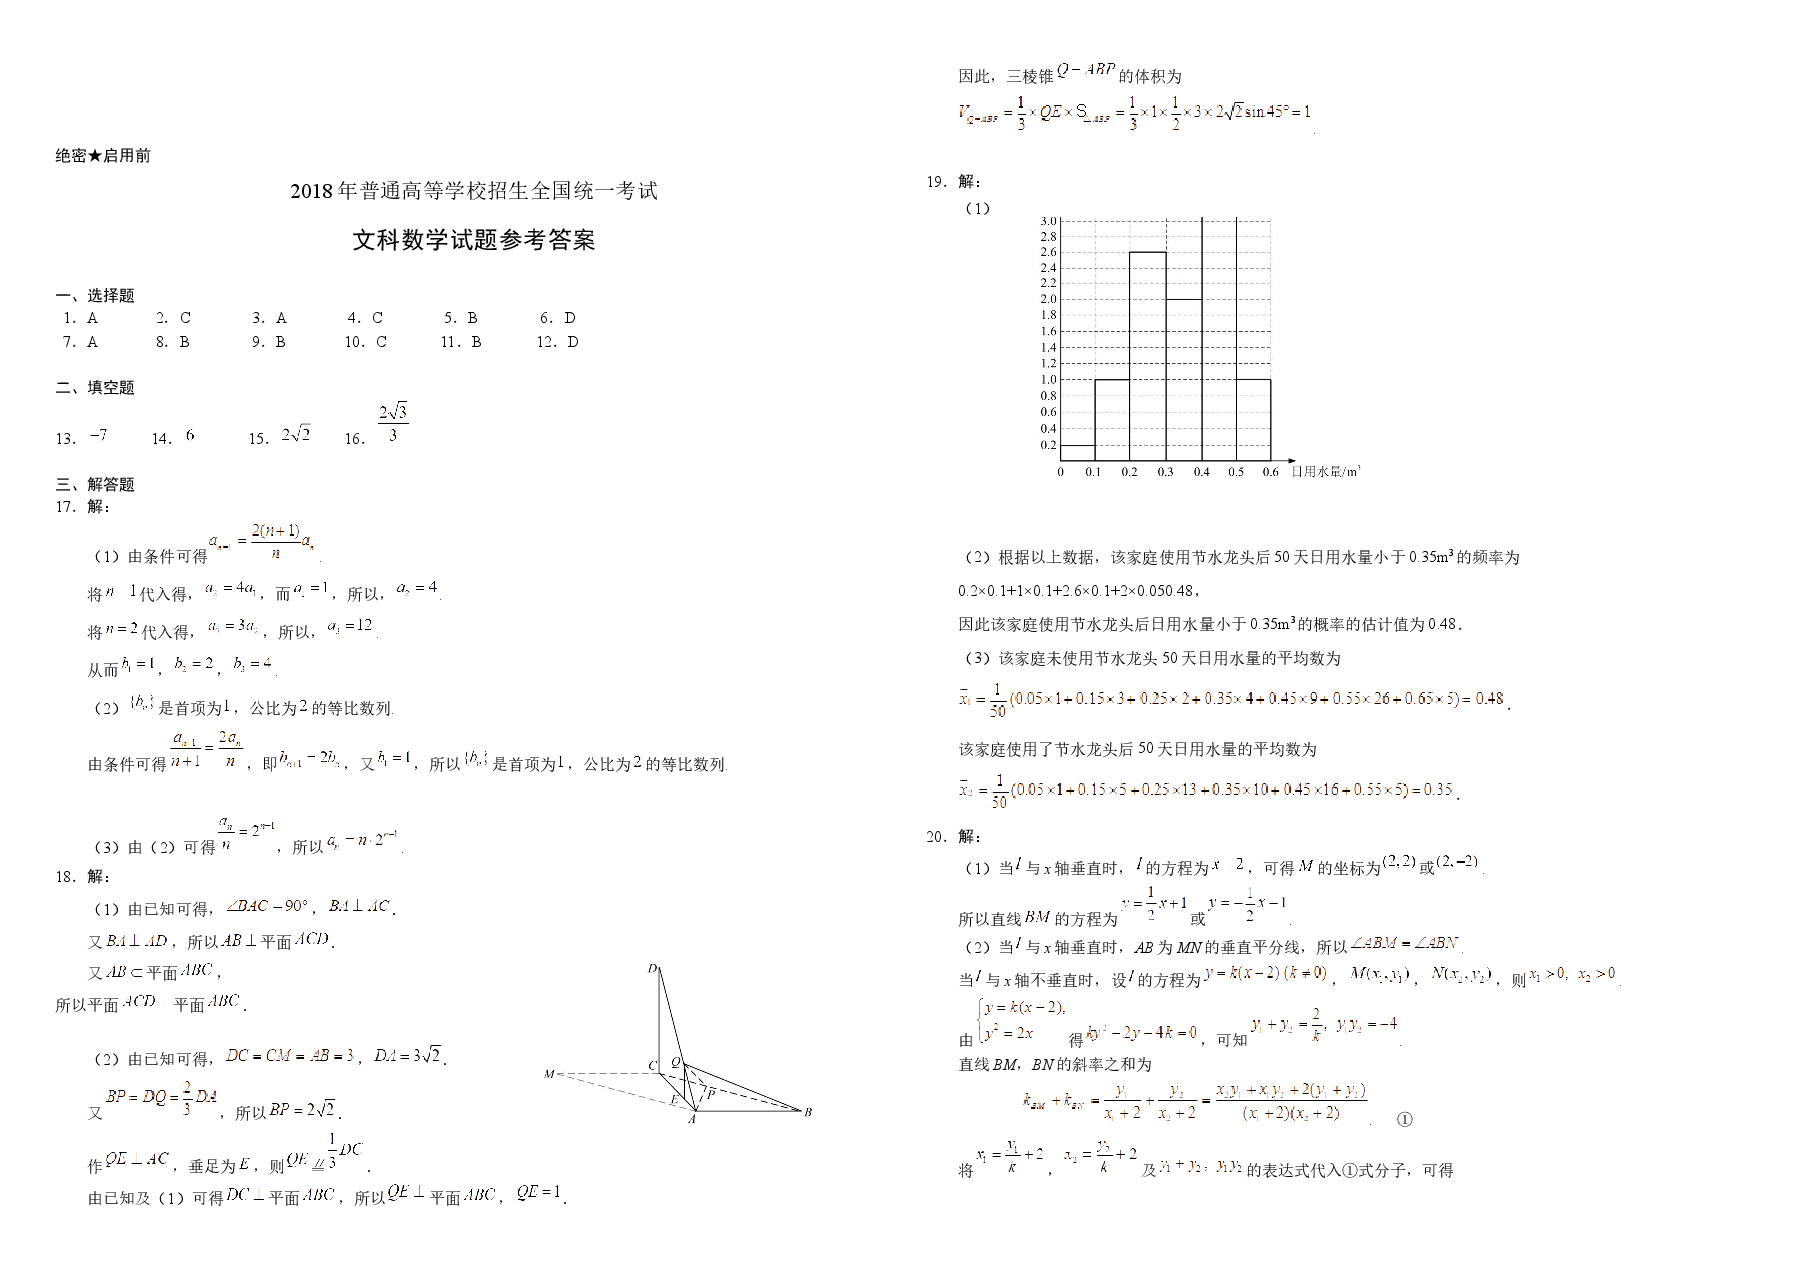 绝密★启用前
2018 年普通高等学校招生全国统一考试
文科数学试题参考答案
一、选择题
1．A 2．C 3．A 4．C 5．B 6．D
7．A 8．B 9．B 10．C 11．B 12．D
二、填空题
13．−7 14．6 15．2√2 16．2√3/3
三、解答题
17．解：
（1）由条件可得 aₙ₊₁ = 2(n+1)/n aₙ．
将 n 1 代入得，a₂ = 4a₁，而 a₁ = 1，所以，a₂ = 4．
将 n = 2 代入得，a₃ = 3a₂，所以，a₃ = 12．
从而 b₁ = 1，b₂ = 2，b₃ = 4．
（2）{bₙ} 是首项为 1，公比为 2 的等比数列．
由条件可得 aₙ₊₁/(n+1) = 2aₙ/n，即 bₙ₊₁ = 2bₙ，又 b₁ = 1，所以 {bₙ} 是首项为 1，公比为 2 的等比数列．
（3）由（2）可得 aₙ/n = 2ⁿ⁻¹，所以 aₙ = n·2ⁿ⁻¹．
18．解：
（1）由已知可得，∠BAC = 90°，BA ⊥ AC．
又 BA ⊥ AD，所以 AB ⊥ 平面 ACD．
又 AB ⊂ 平面 ABC，
所以平面 ACD 平面 ABC．
（2）由已知可得，DC = CM = AB = 3，DA = 3√2．
又 BP = DQ = 2/3 DA，所以 BP = 2√2．
作 QE ⊥ AC，垂足为 E，则 QE ∥= 1/3 DC．
由已知及（1）可得 DC ⊥ 平面 ABC，所以 QE ⊥ 平面 ABC，QE = 1．
D
M
C
Q
P
E
A
B
因此，三棱锥 Q − ABP 的体积为
V_{Q−ABP} = 1/3 × QE × S_{△ABP} = 1/3 × 1 × 1/2 × 3 × 2√2 sin 45° = 1．
19．解：
（1）
3.0
2.8
2.6
2.4
2.2
2.0
1.8
1.6
1.4
1.2
1.0
0.8
0.6
0.4
0.2
0 0.1 0.2 0.3 0.4 0.5 0.6 日用水量/m³
（2）根据以上数据，该家庭使用节水龙头后 50 天日用水量小于 0.35m³ 的频率为
0.2×0.1+1×0.1+2.6×0.1+2×0.050.48，
因此该家庭使用节水龙头后日用水量小于 0.35m³ 的概率的估计值为 0.48．
（3）该家庭未使用节水龙头 50 天日用水量的平均数为
x̄₁ = 1/50 (0.05×1+0.15×3+0.25×2+0.35×4+0.45×9+0.55×26+0.65×5) = 0.48．
该家庭使用了节水龙头后 50 天日用水量的平均数为
x̄₂ = 1/50 (0.05×1+0.15×5+0.25×13+0.35×10+0.45×16+0.55×5) = 0.35．
20．解：
（1）当 l 与 x 轴垂直时，l 的方程为 x 2，可得 M 的坐标为 (2, 2) 或 (2, −2)．
所以直线 BM 的方程为 y = 1/2 x + 1 或 y = −1/2 x − 1．
（2）当 l 与 x 轴垂直时，AB 为 MN 的垂直平分线，所以 ∠ABM = ∠ABN．
当 l 与 x 轴不垂直时，设 l 的方程为 y = k(x−2) (k ≠ 0)，M(x₁, y₁)，N(x₂, y₂)，则 x₁ > 0, x₂ > 0．
由 { y = k(x−2), y² = 2x 得 ky² − 2y − 4k = 0，可知 y₁ + y₂ = 2/k, y₁y₂ = −4．
直线 BM，BN 的斜率之和为
k_{BM} + k_{BN} = y₁/(x₁+2) + y₂/(x₂+2) = (x₂y₁ + x₁y₂ + 2(y₁ + y₂))/((x₁+2)(x₂+2))． ①
将 x₁ = y₁/k + 2，x₂ = y₂/k + 2 及 y₁ + y₂，y₁y₂ 的表达式代入①式分子，可得